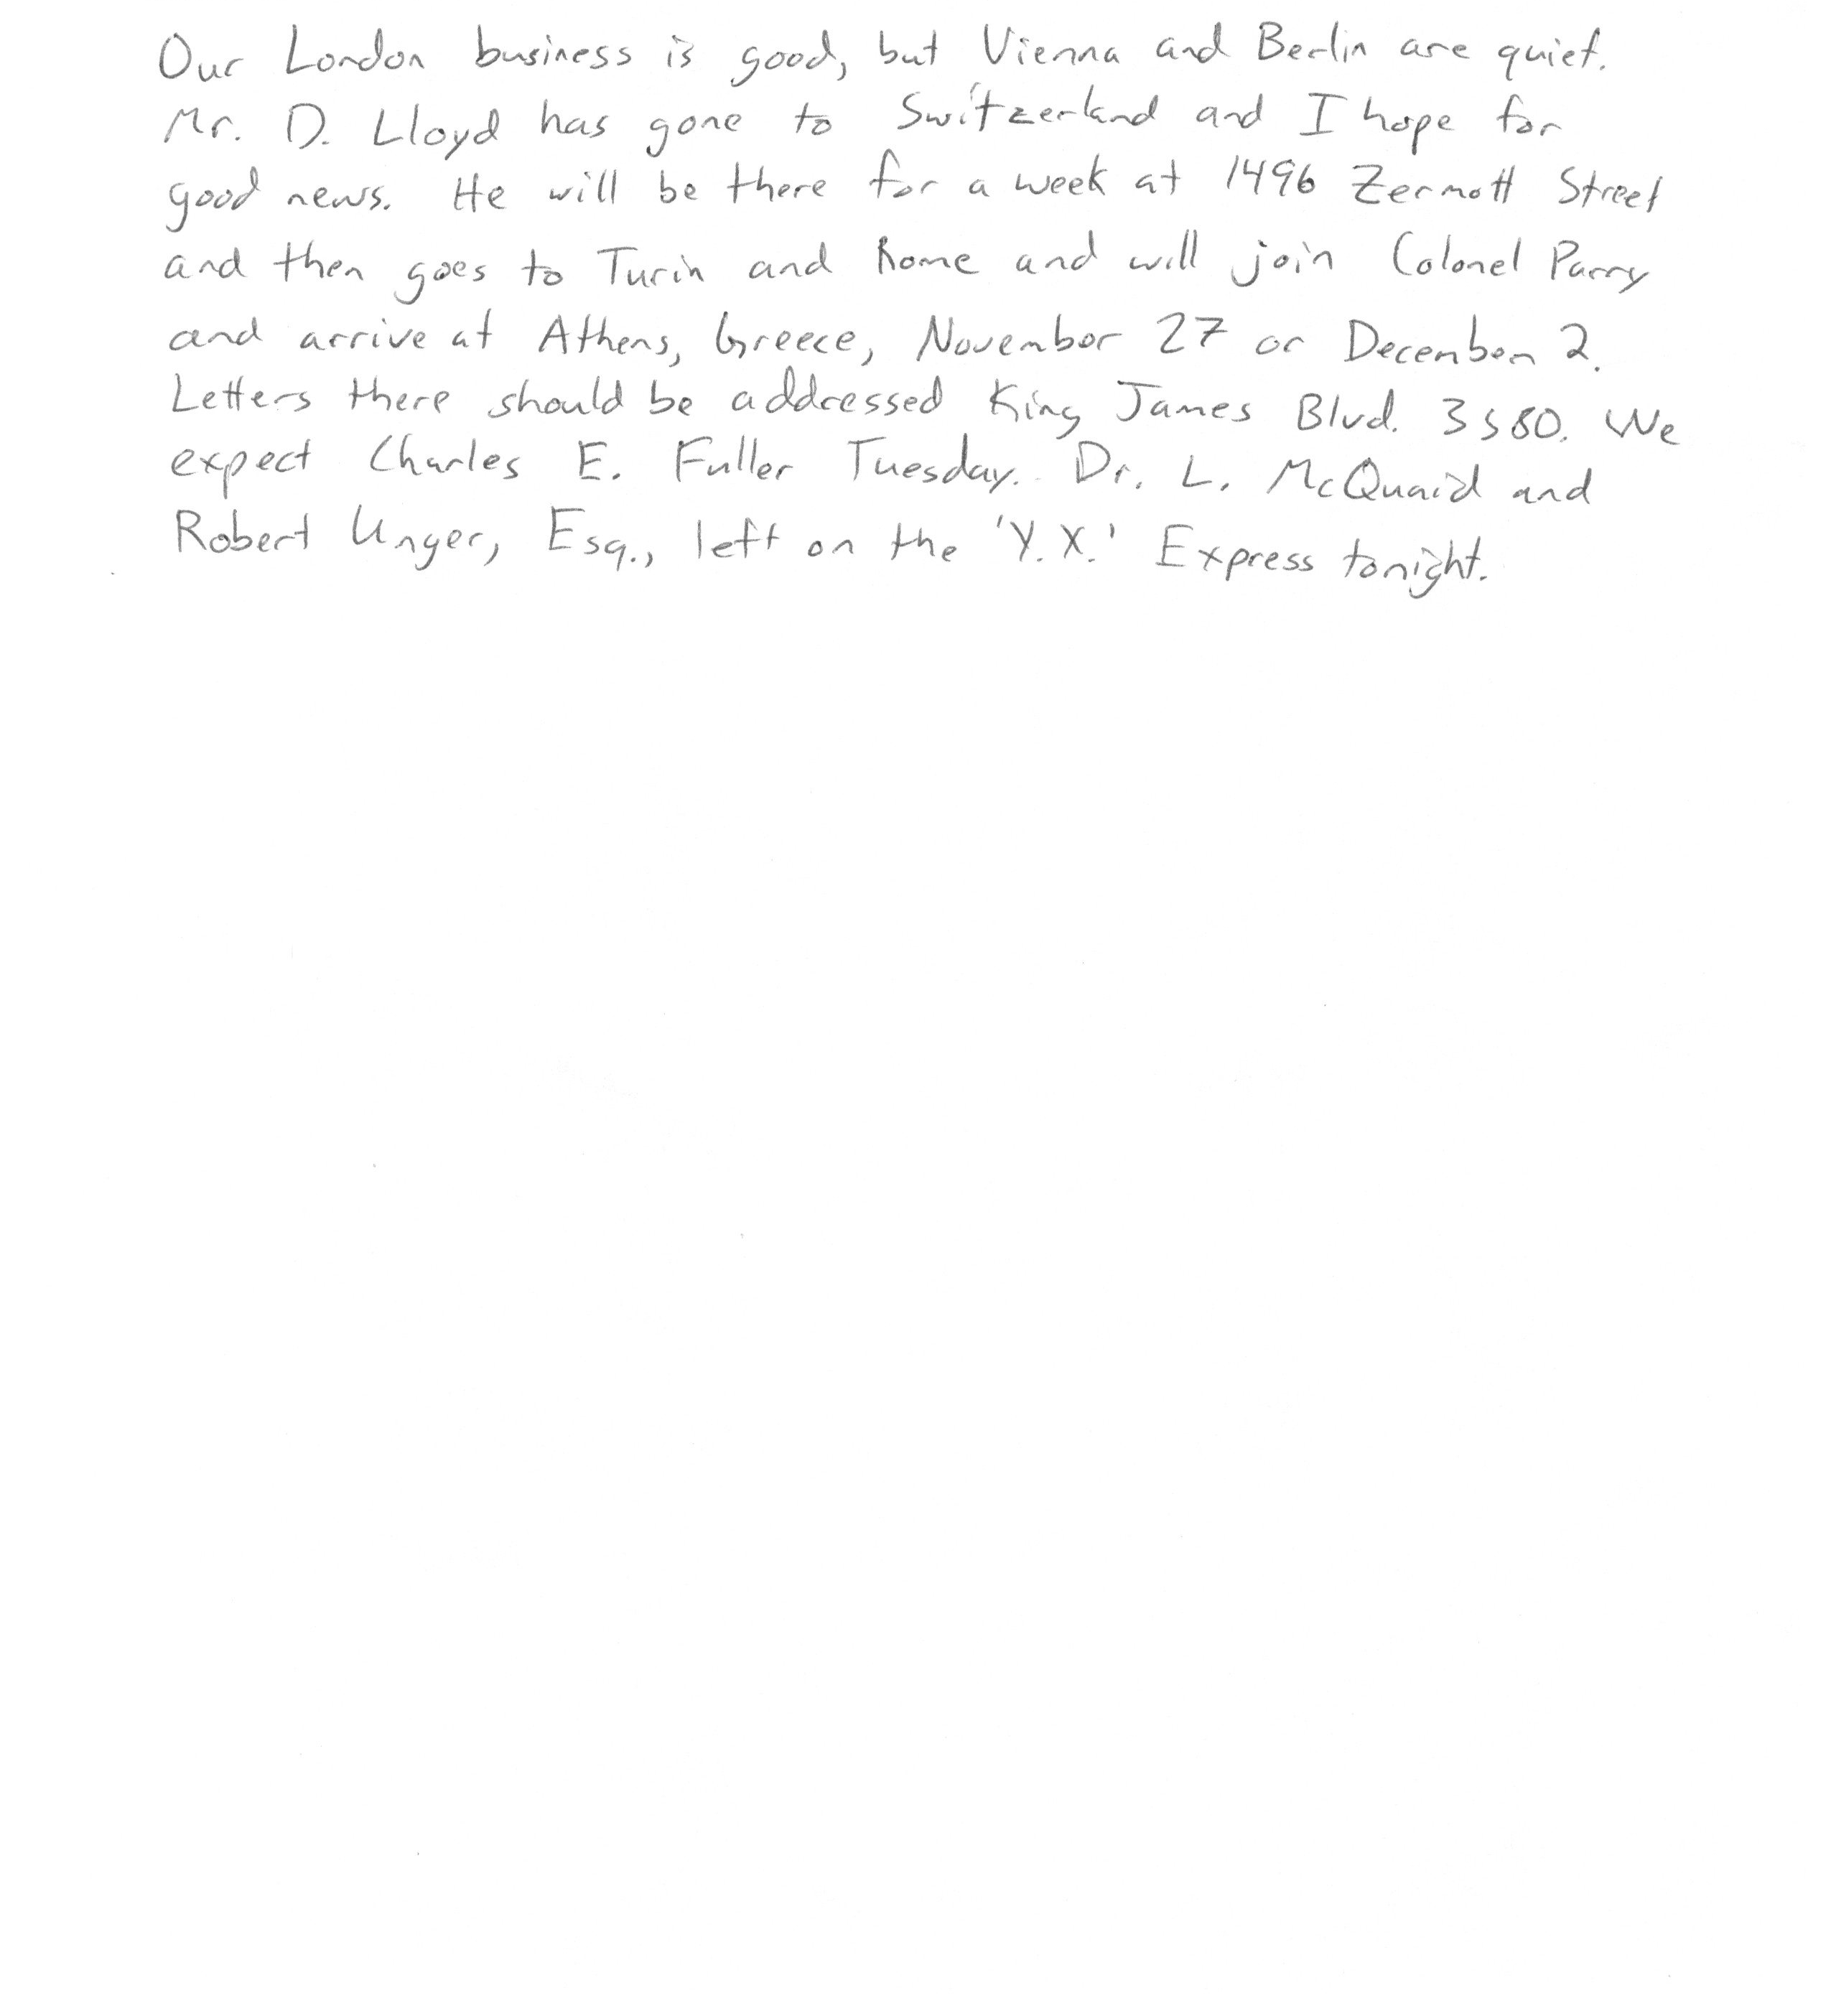 Our London business is good, but Vienna and Berlin are quiet.
Mr. D. Lloyd has gone to Switzerland and I hope for
good news. He will be there for a week at 1496 Zermott Street
and then goes to Turin and Rome and will join Colonel Parry
and arrive at Athens, Greece, November 27 or December 2.
Letters there should be addressed King James Blvd. 3580. We
expect Charles E. Fuller Tuesday. Dr. L. McQuaid and
Robert Unger, Esq., left on the 'Y.X.' Express tonight.